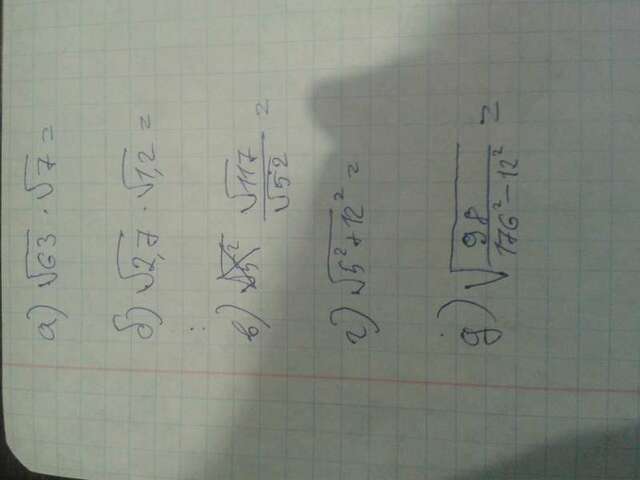 а) √63 · √7 =
б) √2,7 · √1,2 =
в) √117 / √52 =
г) √5² + 12² =
д) √98 / 176² - 12² =